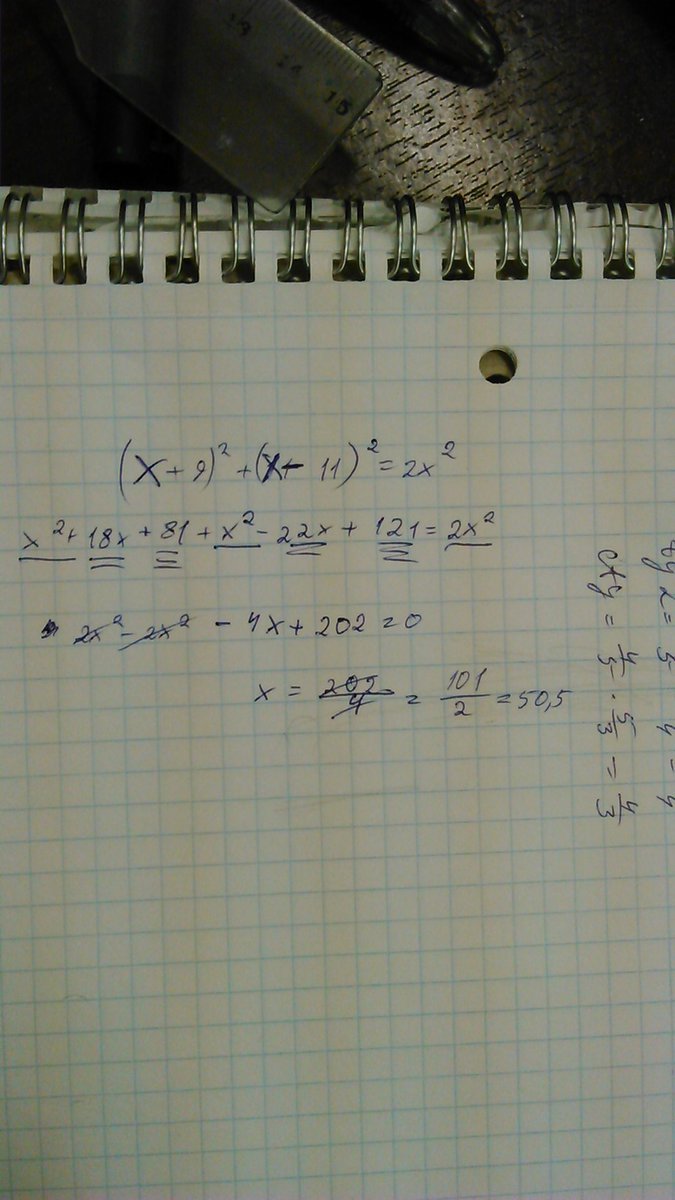 (x+9)²+(x- 11)²=2x²
x²+18x+81+x²-22x+121=2x²
2x²-2x² - 4x+202=0
x = 202/4 = 101/2 =50,5
ctg = 4/5 · 5/3 = 4/3
13 14 15